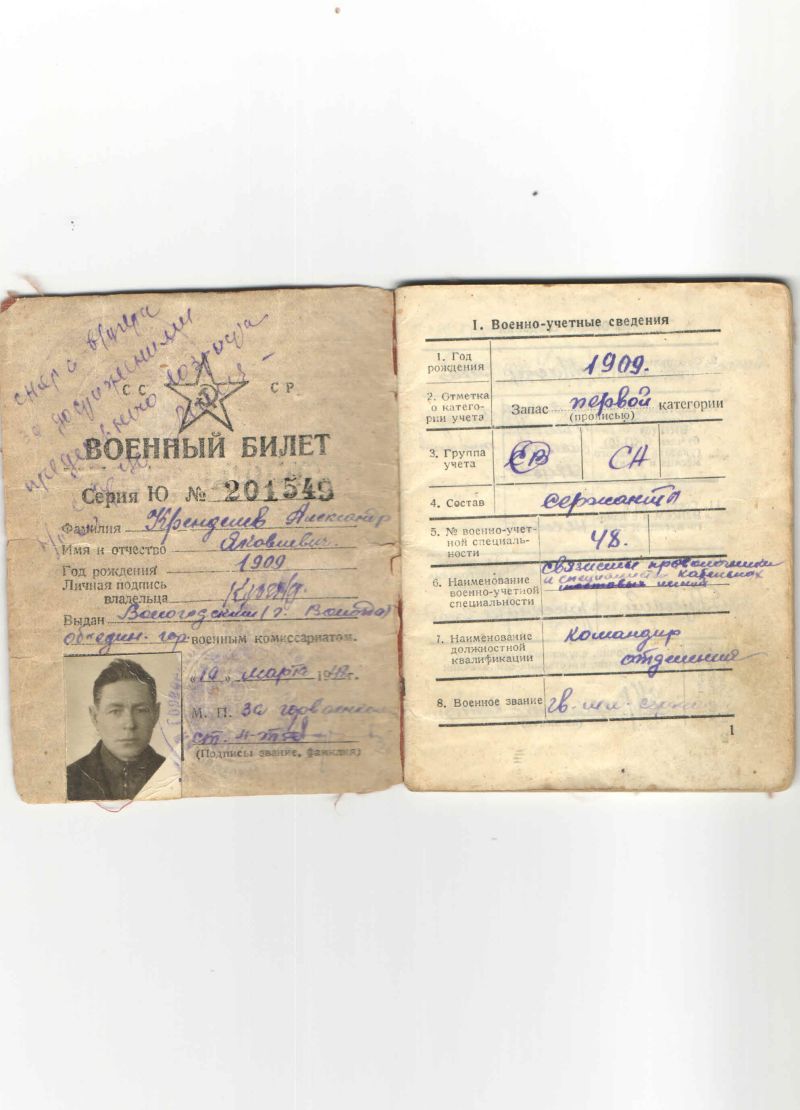 снят с в/учета
за достижением
предельного возраста
СС СР
ВОЕННЫЙ БИЛЕТ
Серия Ю № 201549
Фамилия Кренделев Александр
Имя и отчество Яковлевич.
Год рождения 1909
Личная подпись
владельца
Выдан Вологодским (г. Вологда)
объедин. гор. военным комиссариатом.
"19" марта 19 г.
М. П. За горвоенком
ст. л-т
(Подписы звание, фамилия)
I. Военно-учетные сведения
1. Год рождения 1909.
2. Отметка о катего-
рии учета Запас первой категории
(прописью)
3. Группа учета СВ СА
4. Состав сержанты
5. № военно-учет-
ной специаль-
ности 48.
6. Наименование военно-учетной специальности связисты проволочники
и специалисты кабельных
линий
7. Наименование должностной квалификации командир
отделения
8. Военное звание гв. мл. сержант
1